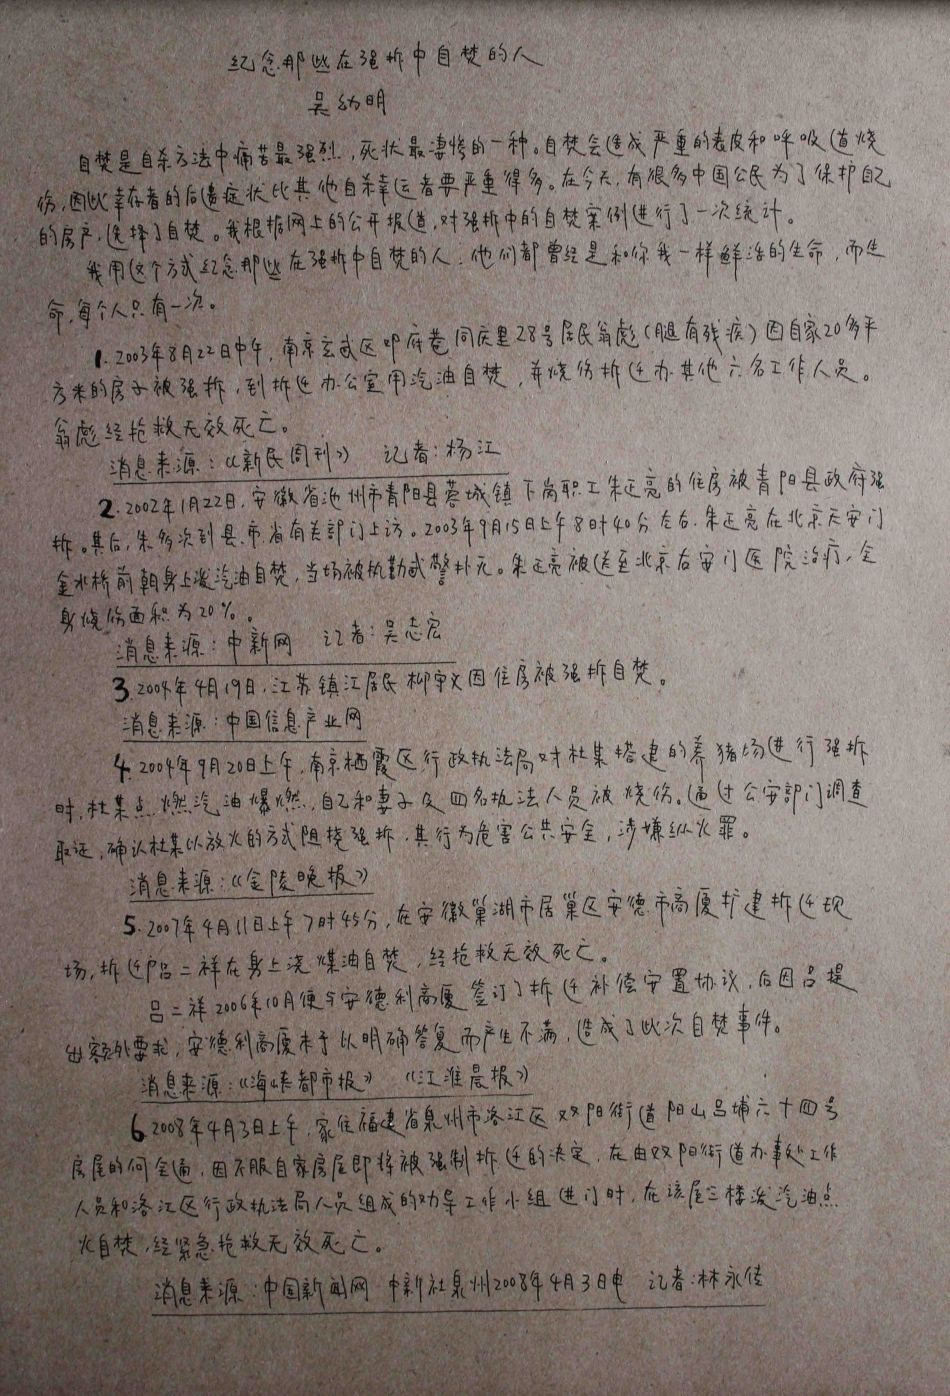 纪念那些在强拆中自焚的人
吴幼明
自焚是自杀方法中痛苦最强烈，死状最凄惨的一种。自焚会造成严重的表皮和呼吸道烧
伤，因此幸存者的后遗症状比其他自杀幸运者要严重得多。在今天，有很多中国公民为了保护自己
的房产，选择了自焚。我根据网上的公开报道，对强拆中的自焚案例进行了一次统计。
我用这个方式纪念那些在强拆中自焚的人，他们都曾经是和你我一样鲜活的生命，而生
命，每个人只有一次。
1.2003年8月22日中午，南京玄武区邓府巷同庆里28号居民翁彪（腿有残疾）因自家20多平
方米的房子被强拆，到拆迁办公室用汽油自焚，并烧伤拆迁办其他六名工作人员。
翁彪经抢救无效死亡。
消息来源：《新民周刊》 记者：杨江
2.2002年1月22日，安徽省池州市青阳县蓉城镇下岗职工朱正亮的住房被青阳县政府强
拆。其后，朱多次到县、市、省有关部门上访。2003年9月15日上午8时40分左右，朱正亮在北京天安门
金水桥前朝身上泼汽油自焚，当场被执勤武警扑灭。朱正亮被送至北京右安门医院治疗，全
身烧伤面积为20%。
消息来源：中新网 记者：吴志宏
3.2004年4月19日，江苏镇江居民柳宇文因住房被强拆自焚。
消息来源：中国信息产业网
4.2004年9月20日上午，南京栖霞区行政执法局对杜集搭建的养猪场进行强拆
时，杜某点燃汽油爆燃，自己和妻子及四名执法人员被烧伤。通过公安部门调查
取证，确认杜某以放火的方式阻挠强拆，其行为危害公共安全，涉嫌纵火罪。
消息来源：《金陵晚报》
5.2007年4月11日上午7时45分，在安徽巢湖市居巢区安德市高厦扩建拆迁现
场，拆迁户吕二祥在身上浇煤油自焚，经抢救无效死亡。
吕二祥2006年10月便与安德利高厦签订了拆迁补偿安置协议，后因吕提
出额外要求，安德利高厦未予以明确答复而产生不满，造成了此次自焚事件。
消息来源：《海峡都市报》 《江淮晨报》
6.2008年4月3日上午，家住福建省泉州市洛江区双阳街道阳山吕埔六十四号
房屋的何全通，因不服自家房屋即将被强制拆迁的决定，在由双阳街道办事处工作
人员和洛江区行政执法局人员组成的劝导工作小组进门时，在该屋三楼泼汽油点
火自焚，经紧急抢救无效死亡。
消息来源：中国新闻网 中新社泉州2008年4月3日电 记者：林永传